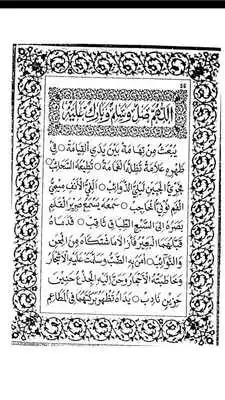 اَللّٰهُمَّ صَلِّ وَسَلِّمْ وَبَارِكْ عَلَيْهِ
يُبْعَثُ مِنْ تِهَامَةَ بَيْنَ يَدَيِ الْقِيَامَةِ ۝ فِي
ظَهْرِهِ عَلَامَةٌ تُظِلُّهُ الْغَمَامَةُ ۝ تُطِيعُهُ السَّحَائِبُ
فَجْرِيُّ الْجَبِينِ لَيْلِيُّ الذَّوَائِبِ ۝ أَلِفِيُّ الْأَنْفِ مِيمِيُّ
الْفَمِ نُونِيُّ الْحَاجِبِ ۝ سَمْعُهُ يَسْمَعُ صَرِيرَ الْقَلَمِ
بَصَرُهُ إِلَى السَّبْعِ الطِّبَاقِ ثَاقِبٌ ۝ قَدَمَاهُ
قَبَّلَهُمَا الْبَعِيرُ فَأَزَالَا مَا اشْتَكَاهُ مِنَ الْمِحَنِ
وَالنَّوَائِبِ ۝ آمَنَ بِهِ الضَّبُّ وَسَلَّمَتْ عَلَيْهِ الْأَشْجَارُ
وَخَاطَبَتْهُ الْأَحْجَارُ وَحَنَّ إِلَيْهِ الْجِذْعُ حَنِينَ
حَزِينٍ نَادِبٍ ۝ يَدَاهُ تَظْهَرُ بَرَكَتُهُمَا فِي الْمَطَاعِمِ